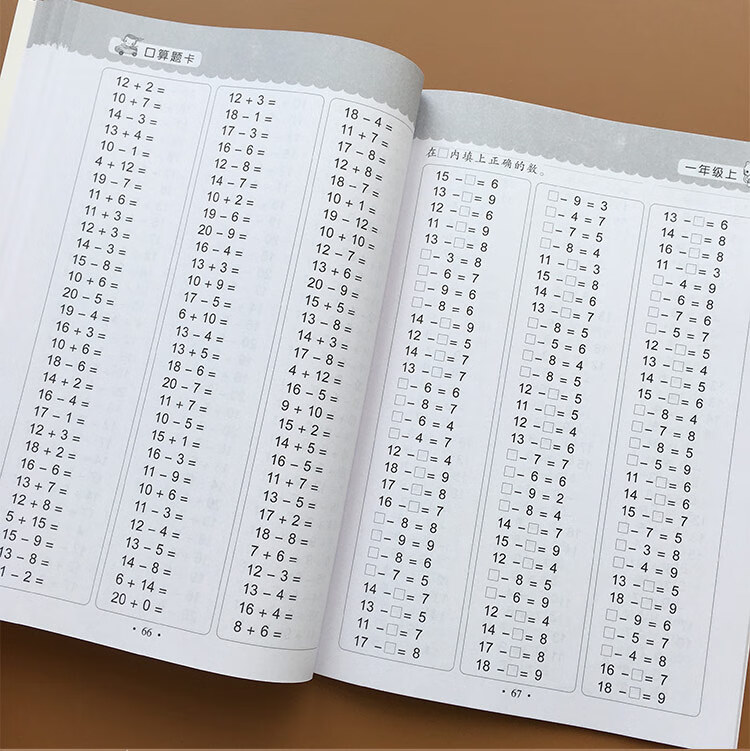 口算题卡
12 + 2 =
10 + 7 =
14 − 3 =
13 + 4 =
10 − 1 =
4 + 12 =
19 − 7 =
11 + 6 =
11 + 3 =
12 + 3 =
14 − 3 =
15 − 8 =
10 + 6 =
20 − 5 =
19 − 4 =
16 + 3 =
10 + 6 =
18 − 6 =
14 + 2 =
16 − 4 =
17 − 1 =
12 + 3 =
18 + 2 =
16 − 6 =
13 + 7 =
12 + 8 =
5 + 15 =
15 − 9 =
13 − 8 =
1 − 2 =
12 + 3 =
18 − 1 =
17 − 3 =
16 − 6 =
12 − 8 =
14 − 7 =
10 + 2 =
19 − 6 =
20 − 9 =
16 − 4 =
13 + 3 =
10 + 9 =
17 − 5 =
6 + 10 =
13 − 4 =
13 + 5 =
18 − 6 =
20 − 7 =
11 + 7 =
10 − 5 =
15 + 1 =
16 − 3 =
11 − 9 =
10 + 6 =
11 − 3 =
12 − 4 =
13 − 5 =
14 − 8 =
6 + 14 =
20 + 0 =
18 − 4 =
11 + 7 =
17 − 8 =
12 + 8 =
18 − 7 =
10 + 1 =
19 − 12 =
10 + 10 =
12 − 7 =
13 + 6 =
20 − 9 =
15 + 5 =
13 − 8 =
14 + 3 =
17 − 8 =
4 + 12 =
16 − 5 =
9 + 10 =
15 + 2 =
14 + 5 =
16 − 5 =
11 + 7 =
13 − 5 =
17 + 2 =
18 − 8 =
7 + 6 =
12 − 3 =
13 − 4 =
16 + 4 =
8 + 6 =
· 66 ·
一年级上
在□内填上正确的数。
15 − □ = 6
13 − □ = 9
12 − □ = 6
11 − □ = 8
13 − □ = 8
□ − 3 = 8
□ − 6 = 7
□ − 9 = 6
□ − 8 = 6
14 − □ = 9
12 − □ = 5
14 − □ = 7
13 − □ = 7
□ − 6 = 6
□ − 8 = 7
□ − 6 = 4
□ − 4 = 7
12 − □ = 4
18 − □ = 9
17 − □ = 8
□ − 8 = 8
□ − 9 = 9
□ − 8 = 6
□ − 7 = 5
14 − □ = 7
13 − □ = 5
11 − □ = 7
17 − □ = 8
□ − 9 = 3
□ − 4 = 7
□ − 7 = 5
□ − 8 = 4
11 − □ = 3
15 − □ = 8
14 − □ = 6
13 − □ = 4
□ − 8 = 5
□ − 5 = 6
□ − 9 = 8
□ − 8 = 6
17 − □ = 9
12 − □ = 5
11 − □ = 4
12 − □ = 4
13 − □ = 6
□ − 7 = 7
□ − 6 = 6
□ − 9 = 2
□ − 8 = 4
14 − □ = 5
11 − □ = 4
□ − 8 = 5
□ − 6 = 9
12 − □ = 4
14 − □ = 9
17 − □ = 8
18 − □ = 9
13 − □ = 6
14 − □ = 8
16 − □ = 8
11 − □ = 3
□ − 4 = 9
□ − 6 = 8
□ − 7 = 6
□ − 5 = 7
12 − □ = 5
13 − □ = 4
14 − □ = 5
15 − □ = 6
□ − 8 = 4
□ − 7 = 8
□ − 8 = 8
□ − 5 = 9
13 − □ = 6
11 − □ = 4
16 − □ = 9
14 − □ = 7
□ − 7 = 5
□ − 3 = 8
13 − □ = 5
18 − □ = 9
□ − 9 = 6
□ − 7 = 5
□ − 4 = 8
16 − □ = 7
18 − □ = 9
· 67 ·